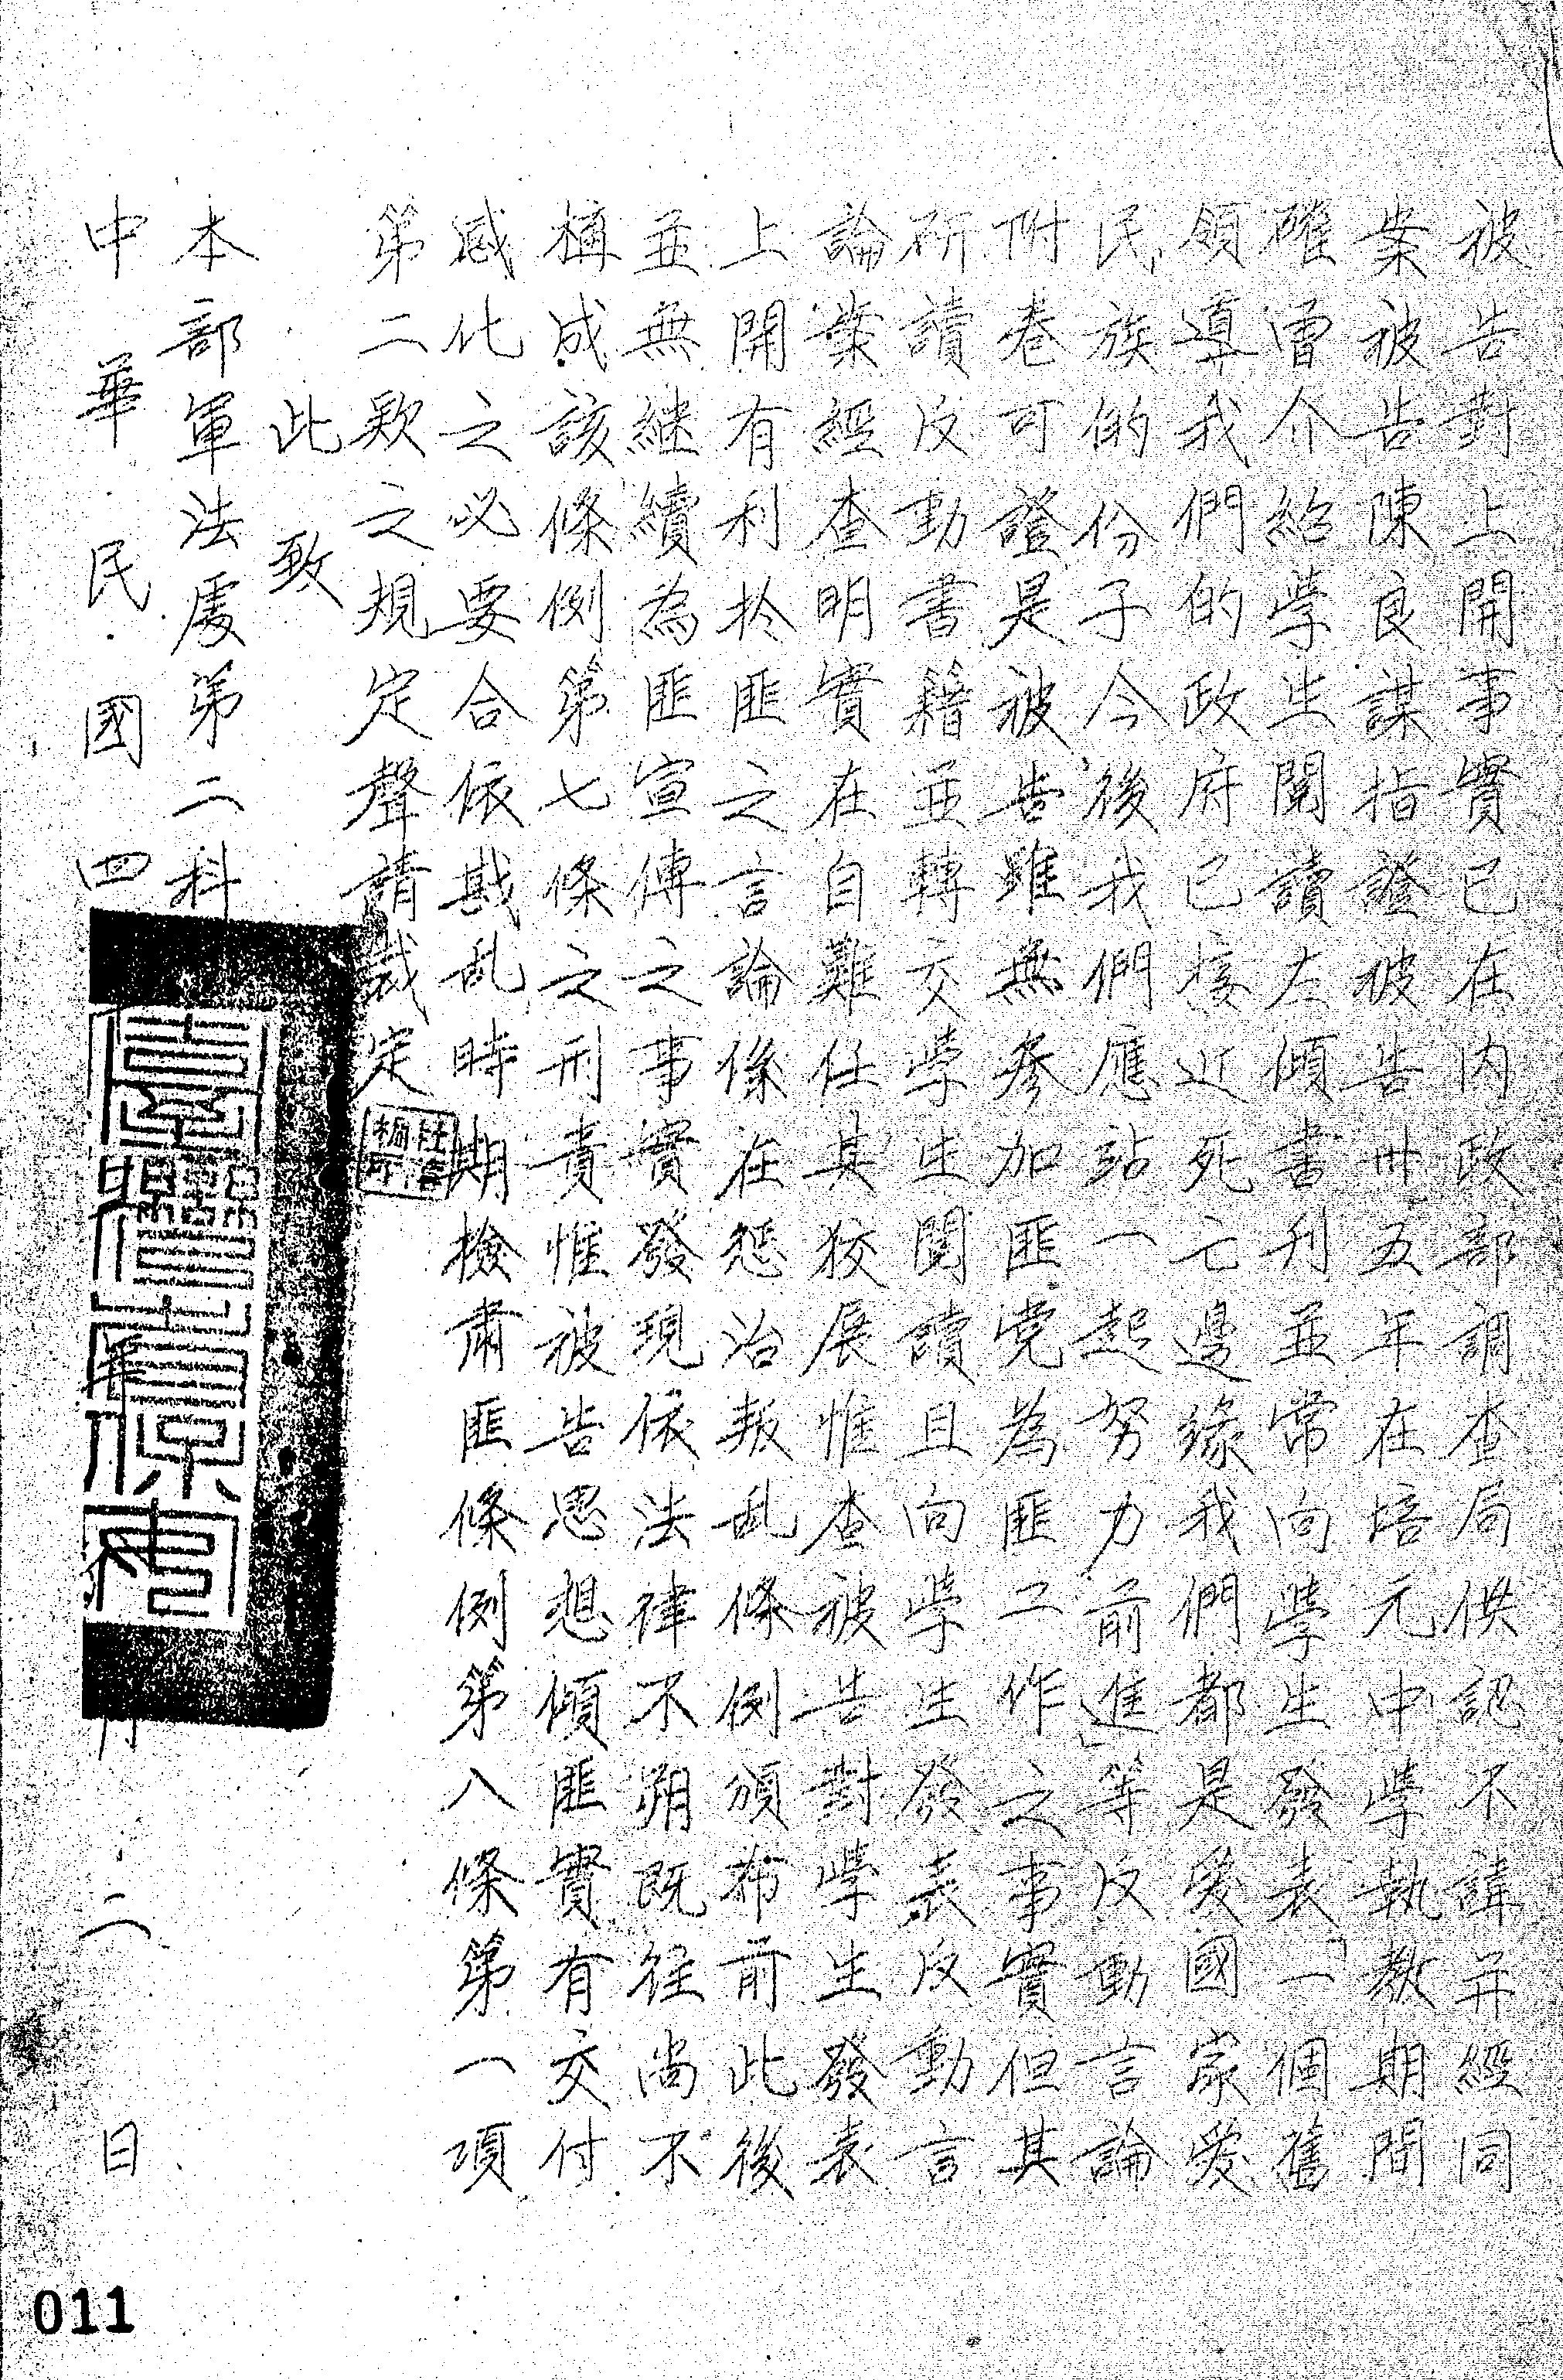 被告對上開事實已在內政部調查局供認不諱并經同
案被告陳良謀指證被告卅五年在培元中學執教期間
確曾介紹學生閱讀左傾書刊並常向學生發表「一個舊
領導我們的政府已接近死亡邊緣我們都是愛國家愛
民族的份子今後我們應站一起努力前進」等反動言論
附卷可證是被告雖無參加匪党為匪工作之事實但其
所讀反動書籍並轉交學生閱讀且向學生發表反動言
論業經查明實在自難任其狡展惟查被告對學生發表
上開有利於匪之言論係在惩治叛乱條例頒布前此後
並無継續為匪宣傳之事實發現依法律不溯既往尚不
構成該條例第七條之刑責惟被告思想傾匪實有交付
感化之必要合依戡乱時期檢肅匪條例第八條第一項
第二款之規定聲請裁定
此致
本部軍法處第二科
中華民國四 年 月 二 日
011